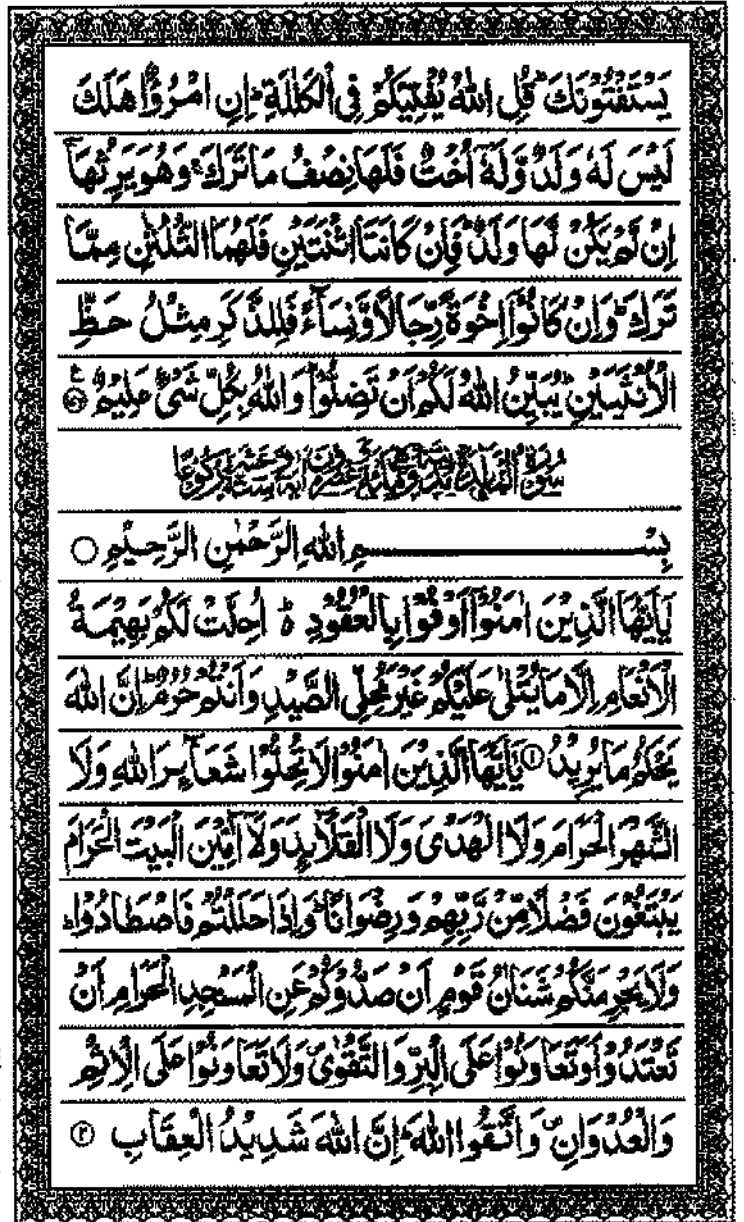 يَسْتَفْتُوْنَكَ ؕ قُلِ اللّٰهُ يُفْتِيْكُمْ فِي الْكَلٰلَةِ ؕ اِنِ امْرُؤٌا هَلَكَ
لَيْسَ لَهٗ وَلَدٌ وَّلَهٗۤ اُخْتٌ فَلَهَا نِصْفُ مَا تَرَكَ ۚ وَهُوَ يَرِثُهَاۤ
اِنْ لَّمْ يَكُنْ لَّهَا وَلَدٌ ؕ فَاِنْ كَانَتَا اثْنَتَيْنِ فَلَهُمَا الثُّلُثٰنِ مِمَّا
تَرَكَ ؕ وَاِنْ كَانُوْۤا اِخْوَةً رِّجَالًا وَّنِسَآءً فَلِلذَّكَرِ مِثْلُ حَظِّ
الْاُنْثَيَيْنِ ؕ يُبَيِّنُ اللّٰهُ لَكُمْ اَنْ تَضِلُّوْا ؕ وَاللّٰهُ بِكُلِّ شَيْءٍ عَلِيْمٌ
سُوْرَةُ الْمَآئِدَةِ
بِسْمِ اللّٰهِ الرَّحْمٰنِ الرَّحِيْمِ ○
يٰۤاَيُّهَا الَّذِيْنَ اٰمَنُوْۤا اَوْفُوْا بِالْعُقُوْدِ ؕ اُحِلَّتْ لَكُمْ بَهِيْمَةُ
الْاَنْعَامِ اِلَّا مَا يُتْلٰى عَلَيْكُمْ غَيْرَ مُحِلِّي الصَّيْدِ وَاَنْتُمْ حُرُمٌ ؕ اِنَّ اللّٰهَ
يَحْكُمُ مَا يُرِيْدُ ۝۱ يٰۤاَيُّهَا الَّذِيْنَ اٰمَنُوْا لَا تُحِلُّوْا شَعَآئِرَ اللّٰهِ وَلَا
الشَّهْرَ الْحَرَامَ وَلَا الْهَدْيَ وَلَا الْقَلَآئِدَ وَلَاۤ اٰمِّيْنَ الْبَيْتَ الْحَرَامَ
يَبْتَغُوْنَ فَضْلًا مِّنْ رَّبِّهِمْ وَرِضْوَانًا ؕ وَاِذَا حَلَلْتُمْ فَاصْطَادُوْا ؕ
وَلَا يَجْرِمَنَّكُمْ شَنَاٰنُ قَوْمٍ اَنْ صَدُّوْكُمْ عَنِ الْمَسْجِدِ الْحَرَامِ اَنْ
تَعْتَدُوْا ۘ وَتَعَاوَنُوْا عَلَى الْبِرِّ وَالتَّقْوٰى ۪ وَلَا تَعَاوَنُوْا عَلَى الْاِثْمِ
وَالْعُدْوَانِ ۪ وَاتَّقُوا اللّٰهَ ؕ اِنَّ اللّٰهَ شَدِيْدُ الْعِقَابِ ۝۲